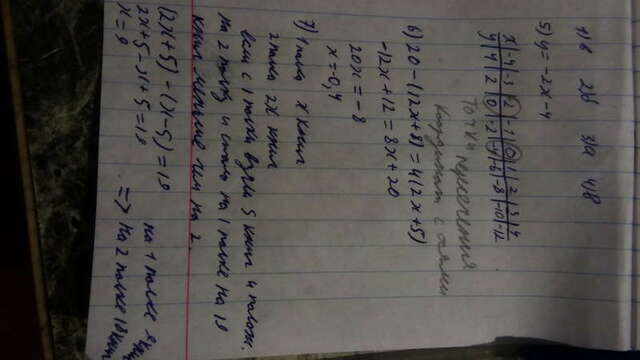 1) в 2) в 3) а 4) в
5) y = -2x - 4
x | -4 | -3 | -2 | -1 | 0 | 1 | 2 | 3 | 4
y | 4 | 2 | 0 | -2 | -4 | -6 | -8 | -10 | -12
Точки пересечения
Координат с осями
6) 20 - (12x + 8) = 4(2x + 5)
-12x + 12 = 8x + 20
20x = -8
x = -0,4
7) 1 полка x книг
2 полка 2x книг
если с 1 полки взяли 5 книг и полож.
на 2 полку и стало на 1 полке на 18
книг меньше чем на 2.
(2x + 5) - (x - 5) = 18
2x + 5 - x + 5 = 18
x = 8
на 1 полке 8
=> на 2 полке